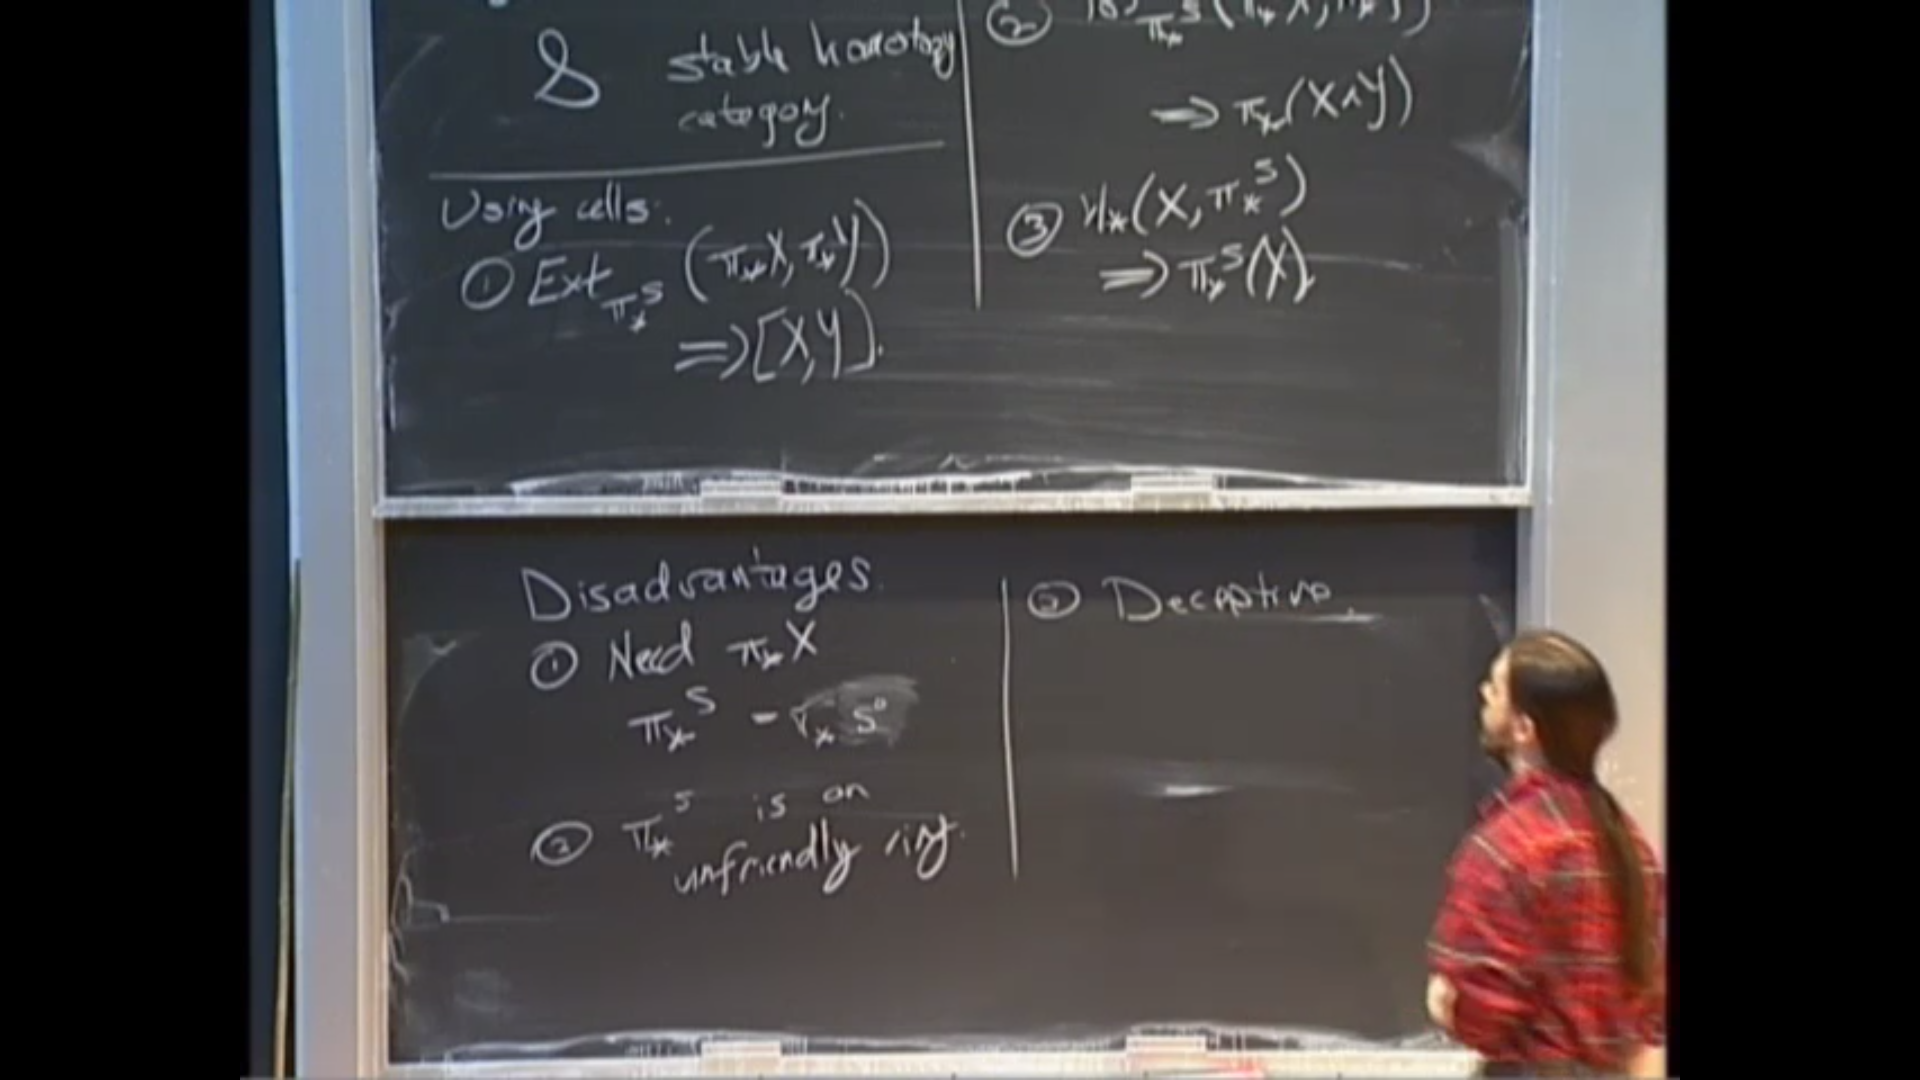 S stable homotopy
category.
Using cells:
① Ext_{π_*^S} (π_*X, π_*Y)
⇒ [X,Y].
②
⇒ π_*(X∧Y)
③ H_*(X, π_*^S)
⇒ π_*^S(X).
Disadvantages.
① Need π_*X
π_*^S - π_* S⁰
② π_*^S is an
unfriendly ring.
③ Deceptive.